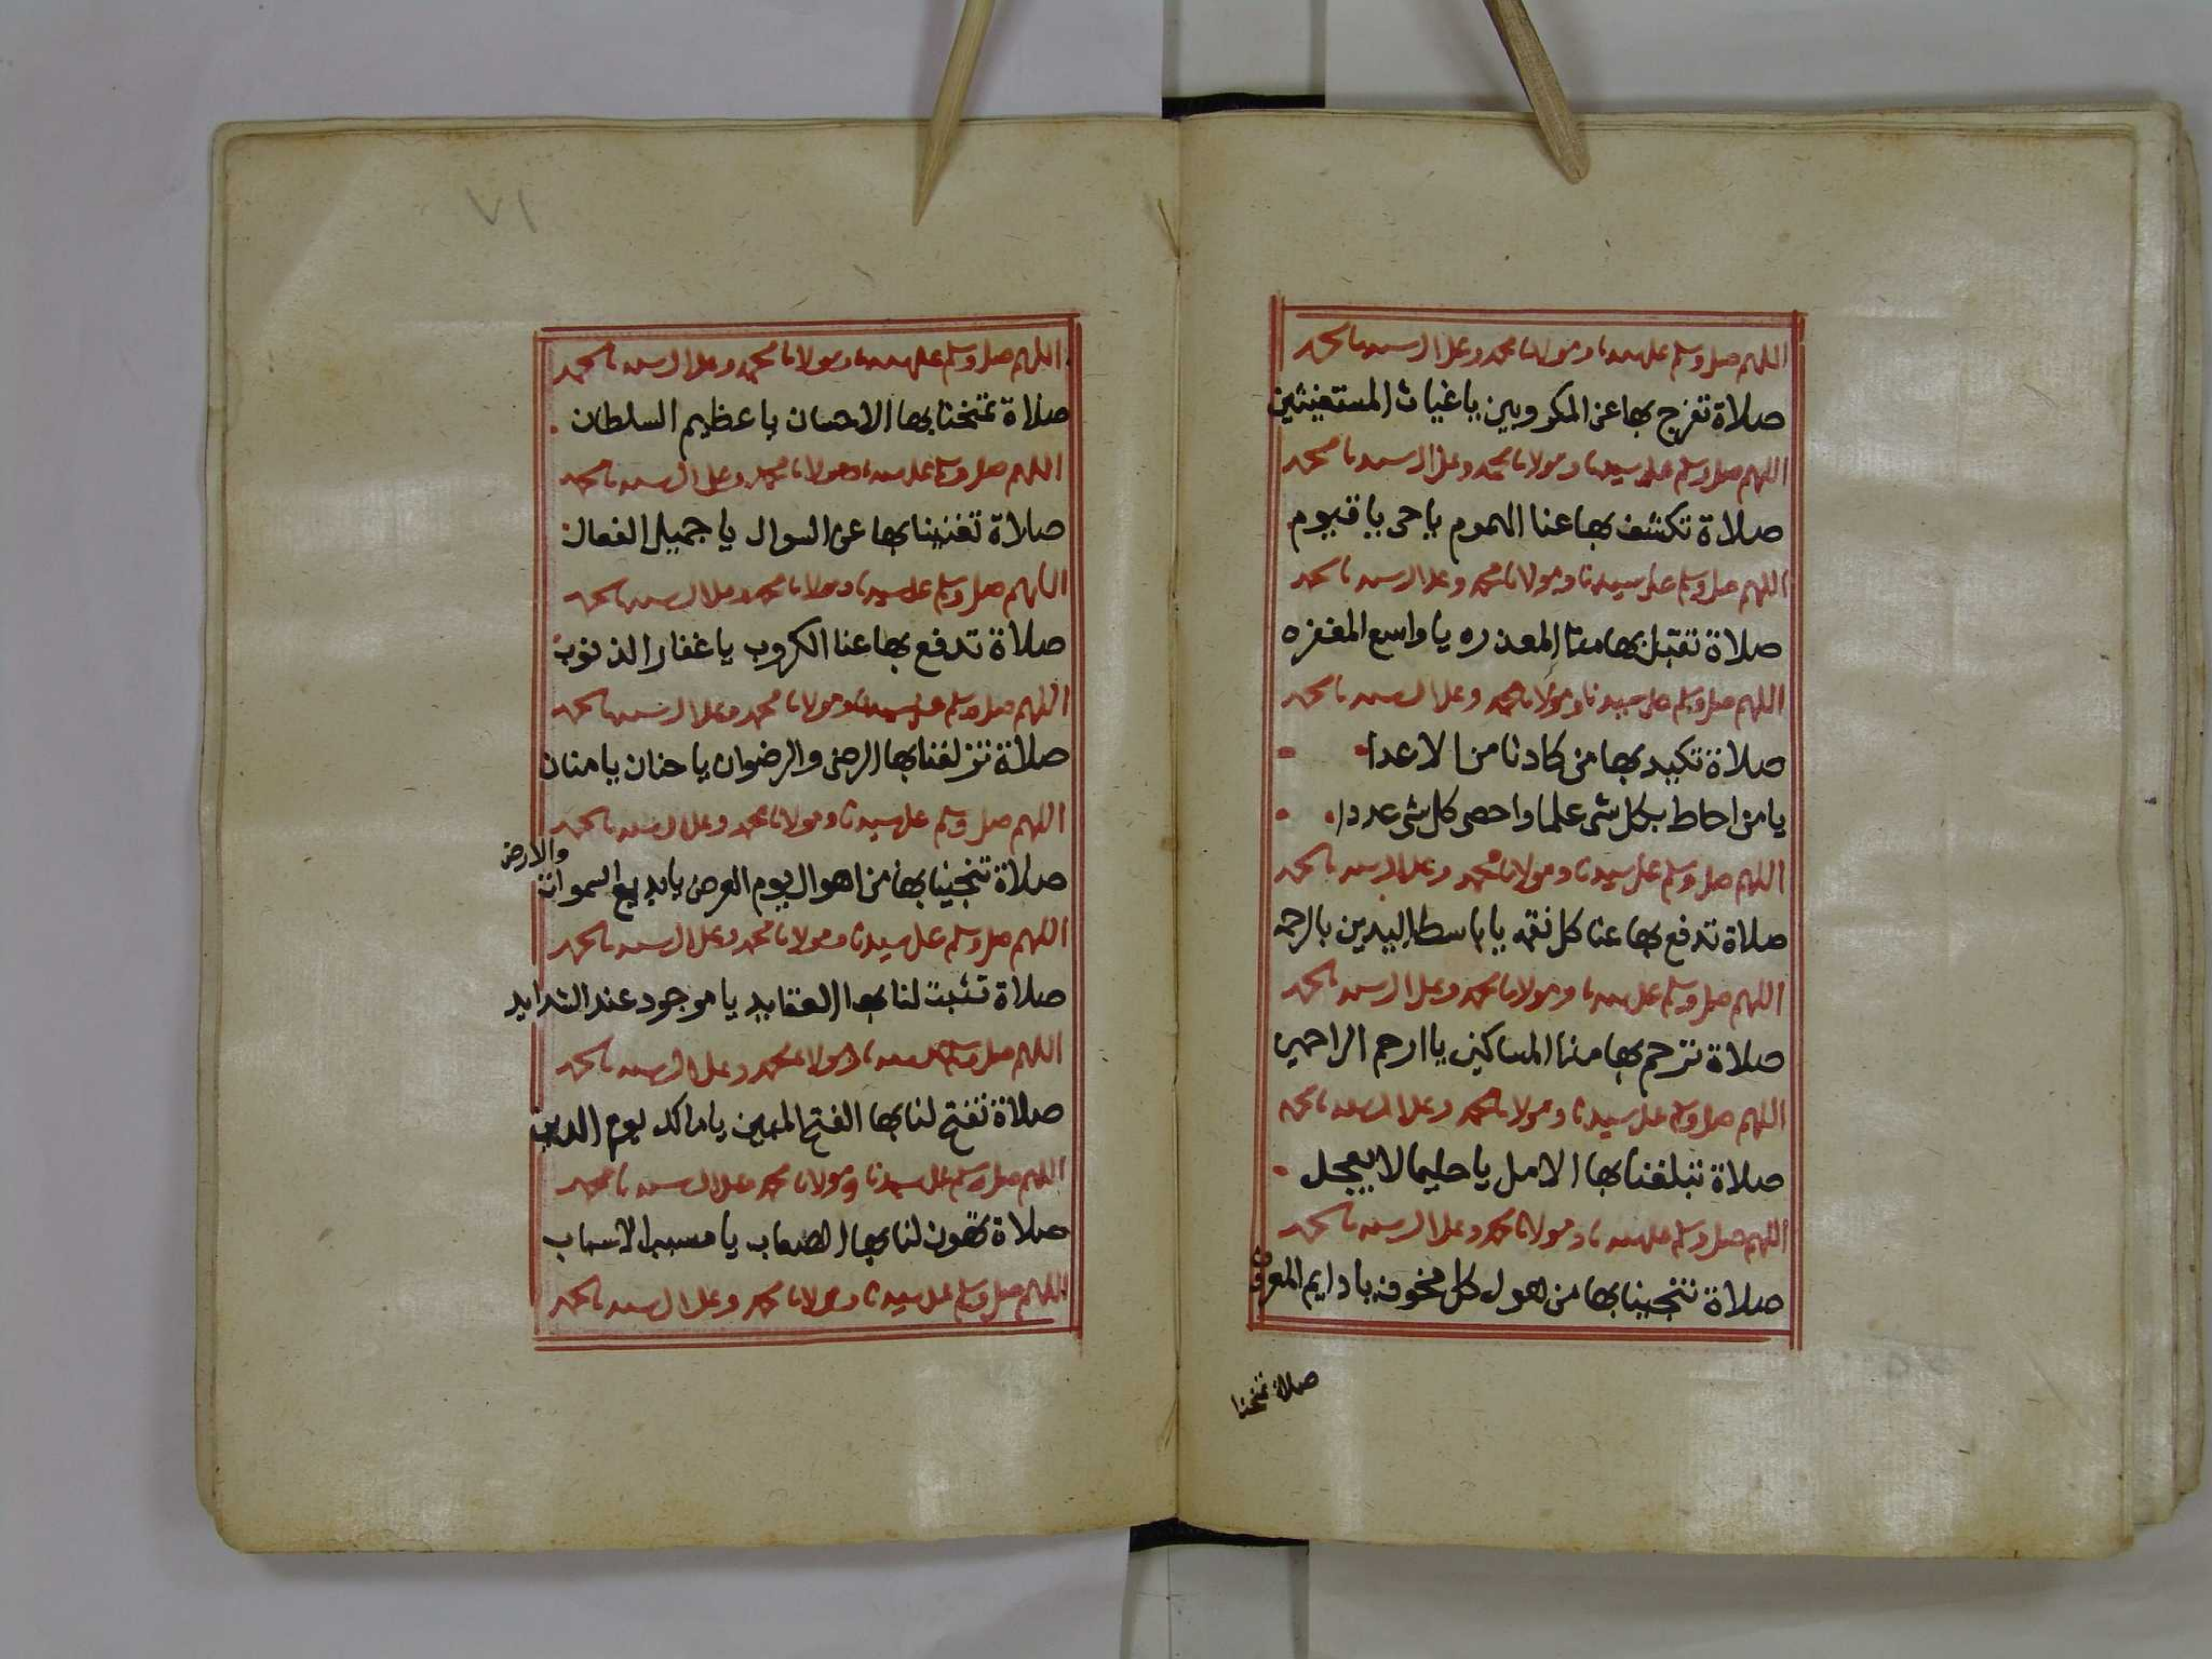 اللهم صل وسلم على سيدنا ومولانا محمد وعلى ال سيدنا محمد
صلاة تفرج بها عن المكروبين يا غياث المستغيثين
اللهم صل وسلم على سيدنا ومولانا محمد وعلى ال سيدنا محمد
صلاة تكشف بها عنا الهموم يا حي يا قيوم
اللهم صل وسلم على سيدنا ومولانا محمد وعلى ال سيدنا محمد
صلاة تقبل بها منا المعذره يا واسع المغفره
اللهم صل وسلم على سيدنا ومولانا محمد وعلى ال سيدنا محمد
صلاة تكيد بها من كادنا من الاعدا
يا من احاط بكل شى علما واحصى كل شى عددا
اللهم صل وسلم على سيدنا ومولانا محمد وعلى ال سيدنا محمد
صلاة تدفع بها عنا كل نقمه يا باسط اليدين بالرحمه
اللهم صل وسلم على سيدنا ومولانا محمد وعلى ال سيدنا محمد
صلاة ترحم بها منا المساكين يا ارحم الراحمين
اللهم صل وسلم على سيدنا ومولانا محمد وعلى ال سيدنا محمد
صلاة تبلغنا بها الامل يا حليما لا يعجل
اللهم صل وسلم على سيدنا ومولانا محمد وعلى ال سيدنا محمد
صلاة تنجينا بها من هول كل مخوف يا دايم المعروف
صلاة تمنحنا
٧١
اللهم صل وسلم على سيدنا ومولانا محمد وعلى ال سيدنا محمد
صلاة تمنحنا بها الاحسان يا عظيم السلطان
اللهم صل وسلم على سيدنا ومولانا محمد وعلى ال سيدنا محمد
صلاة تغنينا بها عن السوال يا جميل الفعال
اللهم صل وسلم على سيدنا ومولانا محمد وعلى ال سيدنا محمد
صلاة تدفع بها عنا الكروب يا غفار الذنوب
اللهم صل وسلم على سيدنا ومولانا محمد وعلى ال سيدنا محمد
صلاة تزلفنا بها الرضى والرضوان يا حنان يا منان
اللهم صل وسلم على سيدنا ومولانا محمد وعلى ال سيدنا محمد
صلاة تنجينا بها من اهوال يوم العرض يا بديع السموات والارض
اللهم صل وسلم على سيدنا ومولانا محمد وعلى ال سيدنا محمد
صلاة تثبت لنا بها العقايد يا موجود عند الشدايد
اللهم صل وسلم على سيدنا ومولانا محمد وعلى ال سيدنا محمد
صلاة تفتح لنا بها الفتح المبين يا مالك يوم الدين
اللهم صل وسلم على سيدنا ومولانا محمد وعلى ال سيدنا محمد
صلاة تهون لنا بها الصعاب يا مسبب الاسباب
اللهم صل وسلم على سيدنا ومولانا محمد وعلى ال سيدنا محمد